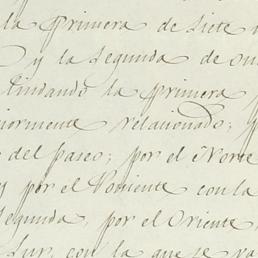 la primera de siete
y la segunda de on
lindando la primera
iormente relacionado;
del paseo; por el Norte
y por el Poniente con la
segunda, por el Oriente
Sur, con la que se va